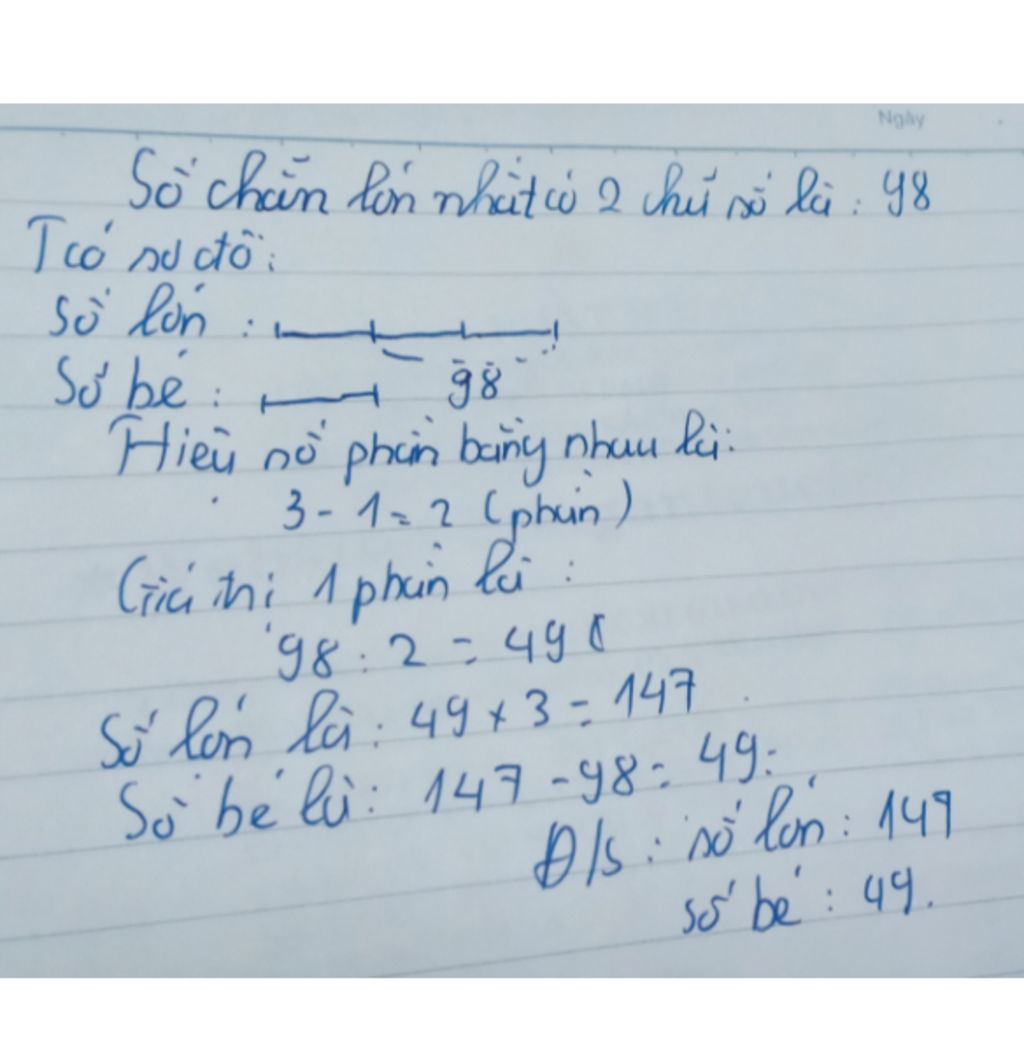 Ngày
Số chẵn lớn nhất có 2 chữ số là : 98
T có sơ đồ :
Số lớn :
98
Số bé :
Hiệu số phần bằng nhau là :
3 - 1 = 2 (phần)
Giá trị 1 phần là :
98 : 2 = 49 (
Số lớn là : 49 x 3 = 147
Số bé là : 147 - 98 = 49.
Đ/s : số lớn : 147
số bé : 49.